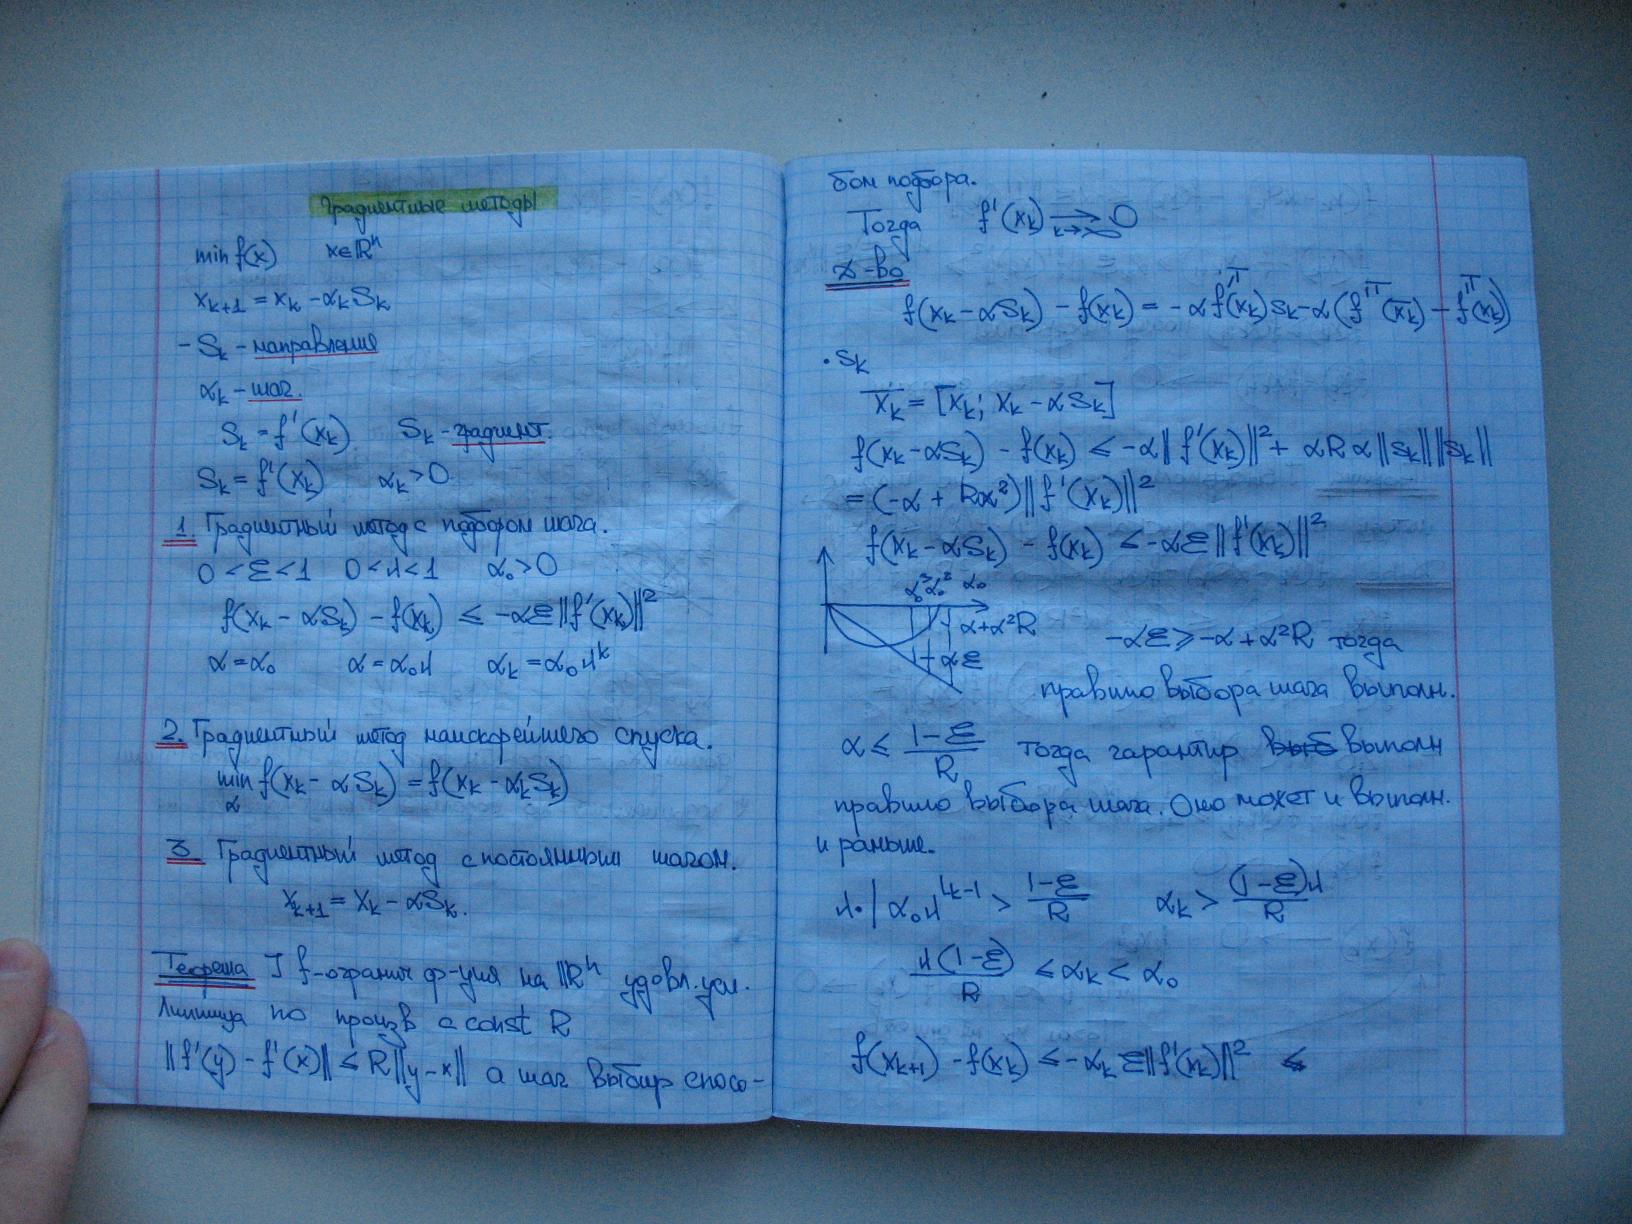 Градиентные методы
min f(x) x∈ℝⁿ
xₖ₊₁ = xₖ - αₖSₖ
- Sₖ - направление
αₖ - шаг.
Sₖ = f'(xₖ) Sₖ - градиент.
Sₖ = f'(xₖ) αₖ > 0
1. Градиентный метод с подбором шага.
0 < ε < 1 0 < λ < 1 α₀ > 0
f(xₖ - αSₖ) - f(xₖ) ≤ -αε||f'(xₖ)||²
α = α₀ α = α₀λ αₖ = α₀λᵏ
2. Градиентный метод наискорейшего спуска.
min f(xₖ - αSₖ) = f(xₖ - αₖSₖ)
α
3. Градиентный метод с постоянным шагом.
xₖ₊₁ = xₖ - αSₖ.
Теорема ] f-огранич ф-ция на ℝⁿ удовл. усл.
Липшица по произв с const R
||f'(y) - f'(x)|| ≤ R||y-x|| а шаг выбир спосо-
бом подбора.
Тогда f'(xₖ) → 0
k→∞
Д-во
f(xₖ - αSₖ) - f(xₖ) = -αf'ᵀ(xₖ)Sₖ - α(f'ᵀ(x̄ₖ) - f'ᵀ(xₖ))
· Sₖ
x̄ₖ = [xₖ; xₖ - αSₖ]
f(xₖ - αSₖ) - f(xₖ) ≤ -α||f'(xₖ)||² + αRα||Sₖ|| ||Sₖ||
= (-α + Rα²)||f'(xₖ)||²
f(xₖ - αSₖ) - f(xₖ) ≤ -αε||f'(xₖ)||²
α₀
-α+α²R
-αε
-αε ≥ -α + α²R тогда
правило выбора шага выполн.
α ≤ (1-ε)/R тогда гарантир выполн
правило выбора шага. Оно может и выполн.
и раньше.
λ· | α₀λᵏ⁻¹ > (1-ε)/R αₖ > (1-ε)λ/R
λ(1-ε)/R ≤ αₖ < α₀
f(xₖ₊₁) - f(xₖ) ≤ -αₖε||f'(xₖ)||² ≤